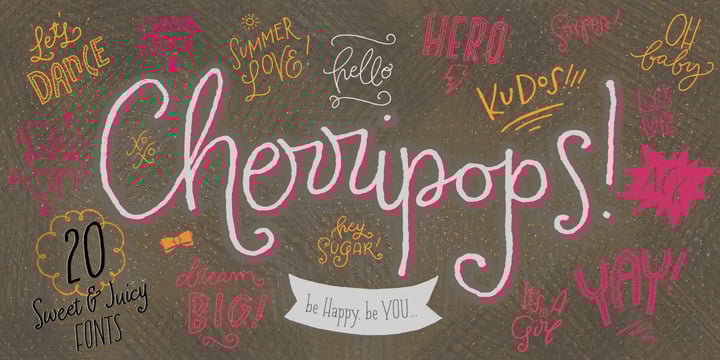 Let's
DANCE
SUMMER
LOVE!
hello
HERO
Surprise!
OH
baby
KuDos!!!
LO
VE
XO
XO
Cherripops!
20
Sweet & Juicy
FONTS
hey
SUGAR!
dream
BIG!
be Happy. be YOU...
It's A
Girl
YAY!